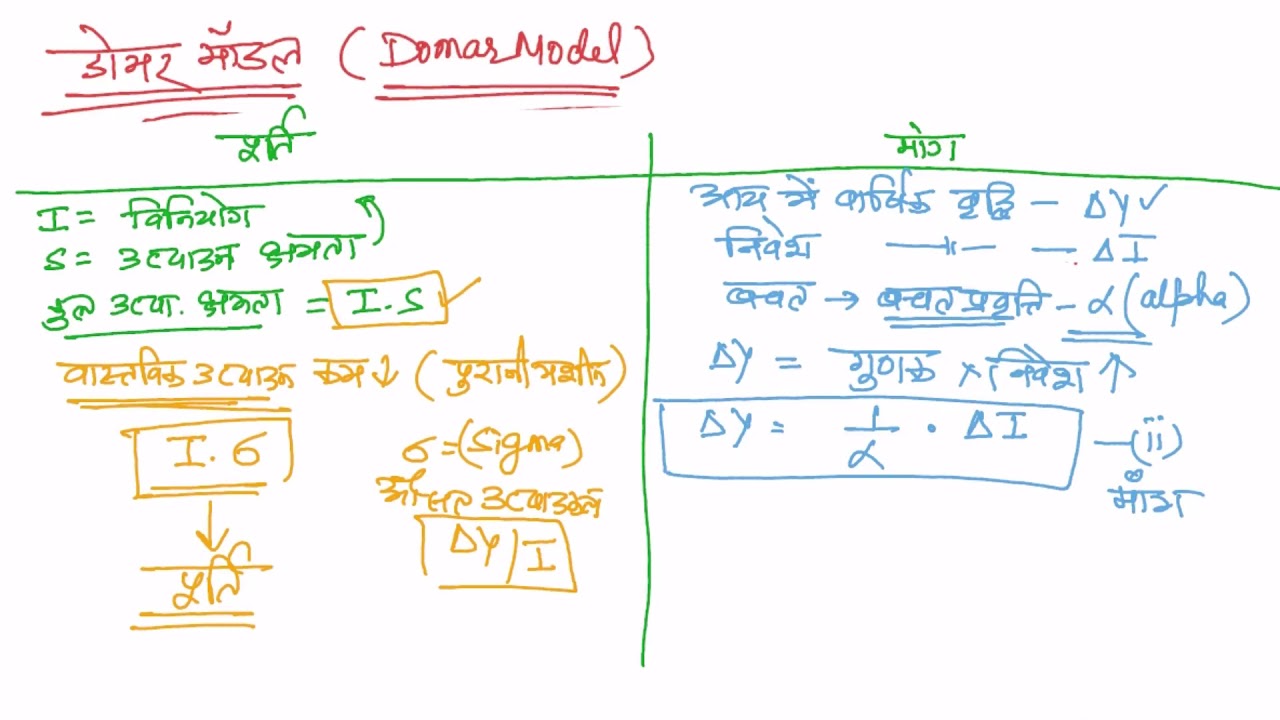 डोमर मॉडल (Domar Model)
पूर्ति
I = विनियोग
S = उत्पादन क्षमता
कुल उत्पा. क्षमता = I.S
वास्तविक उत्पादन कम ↓ (पुरानी मशीन)
I.σ
σ = (Sigma)
औसत उत्पादकता
ΔY/I
पूर्ति
मांग
आय में वार्षिक वृद्धि - ΔY ✓
निवेश —〃— - ΔI
बचत → बचत प्रवृत्ति - α (alpha)
ΔY = गुणक × निवेश ↑
ΔY = 1/α · ΔI —(ii)
माँग